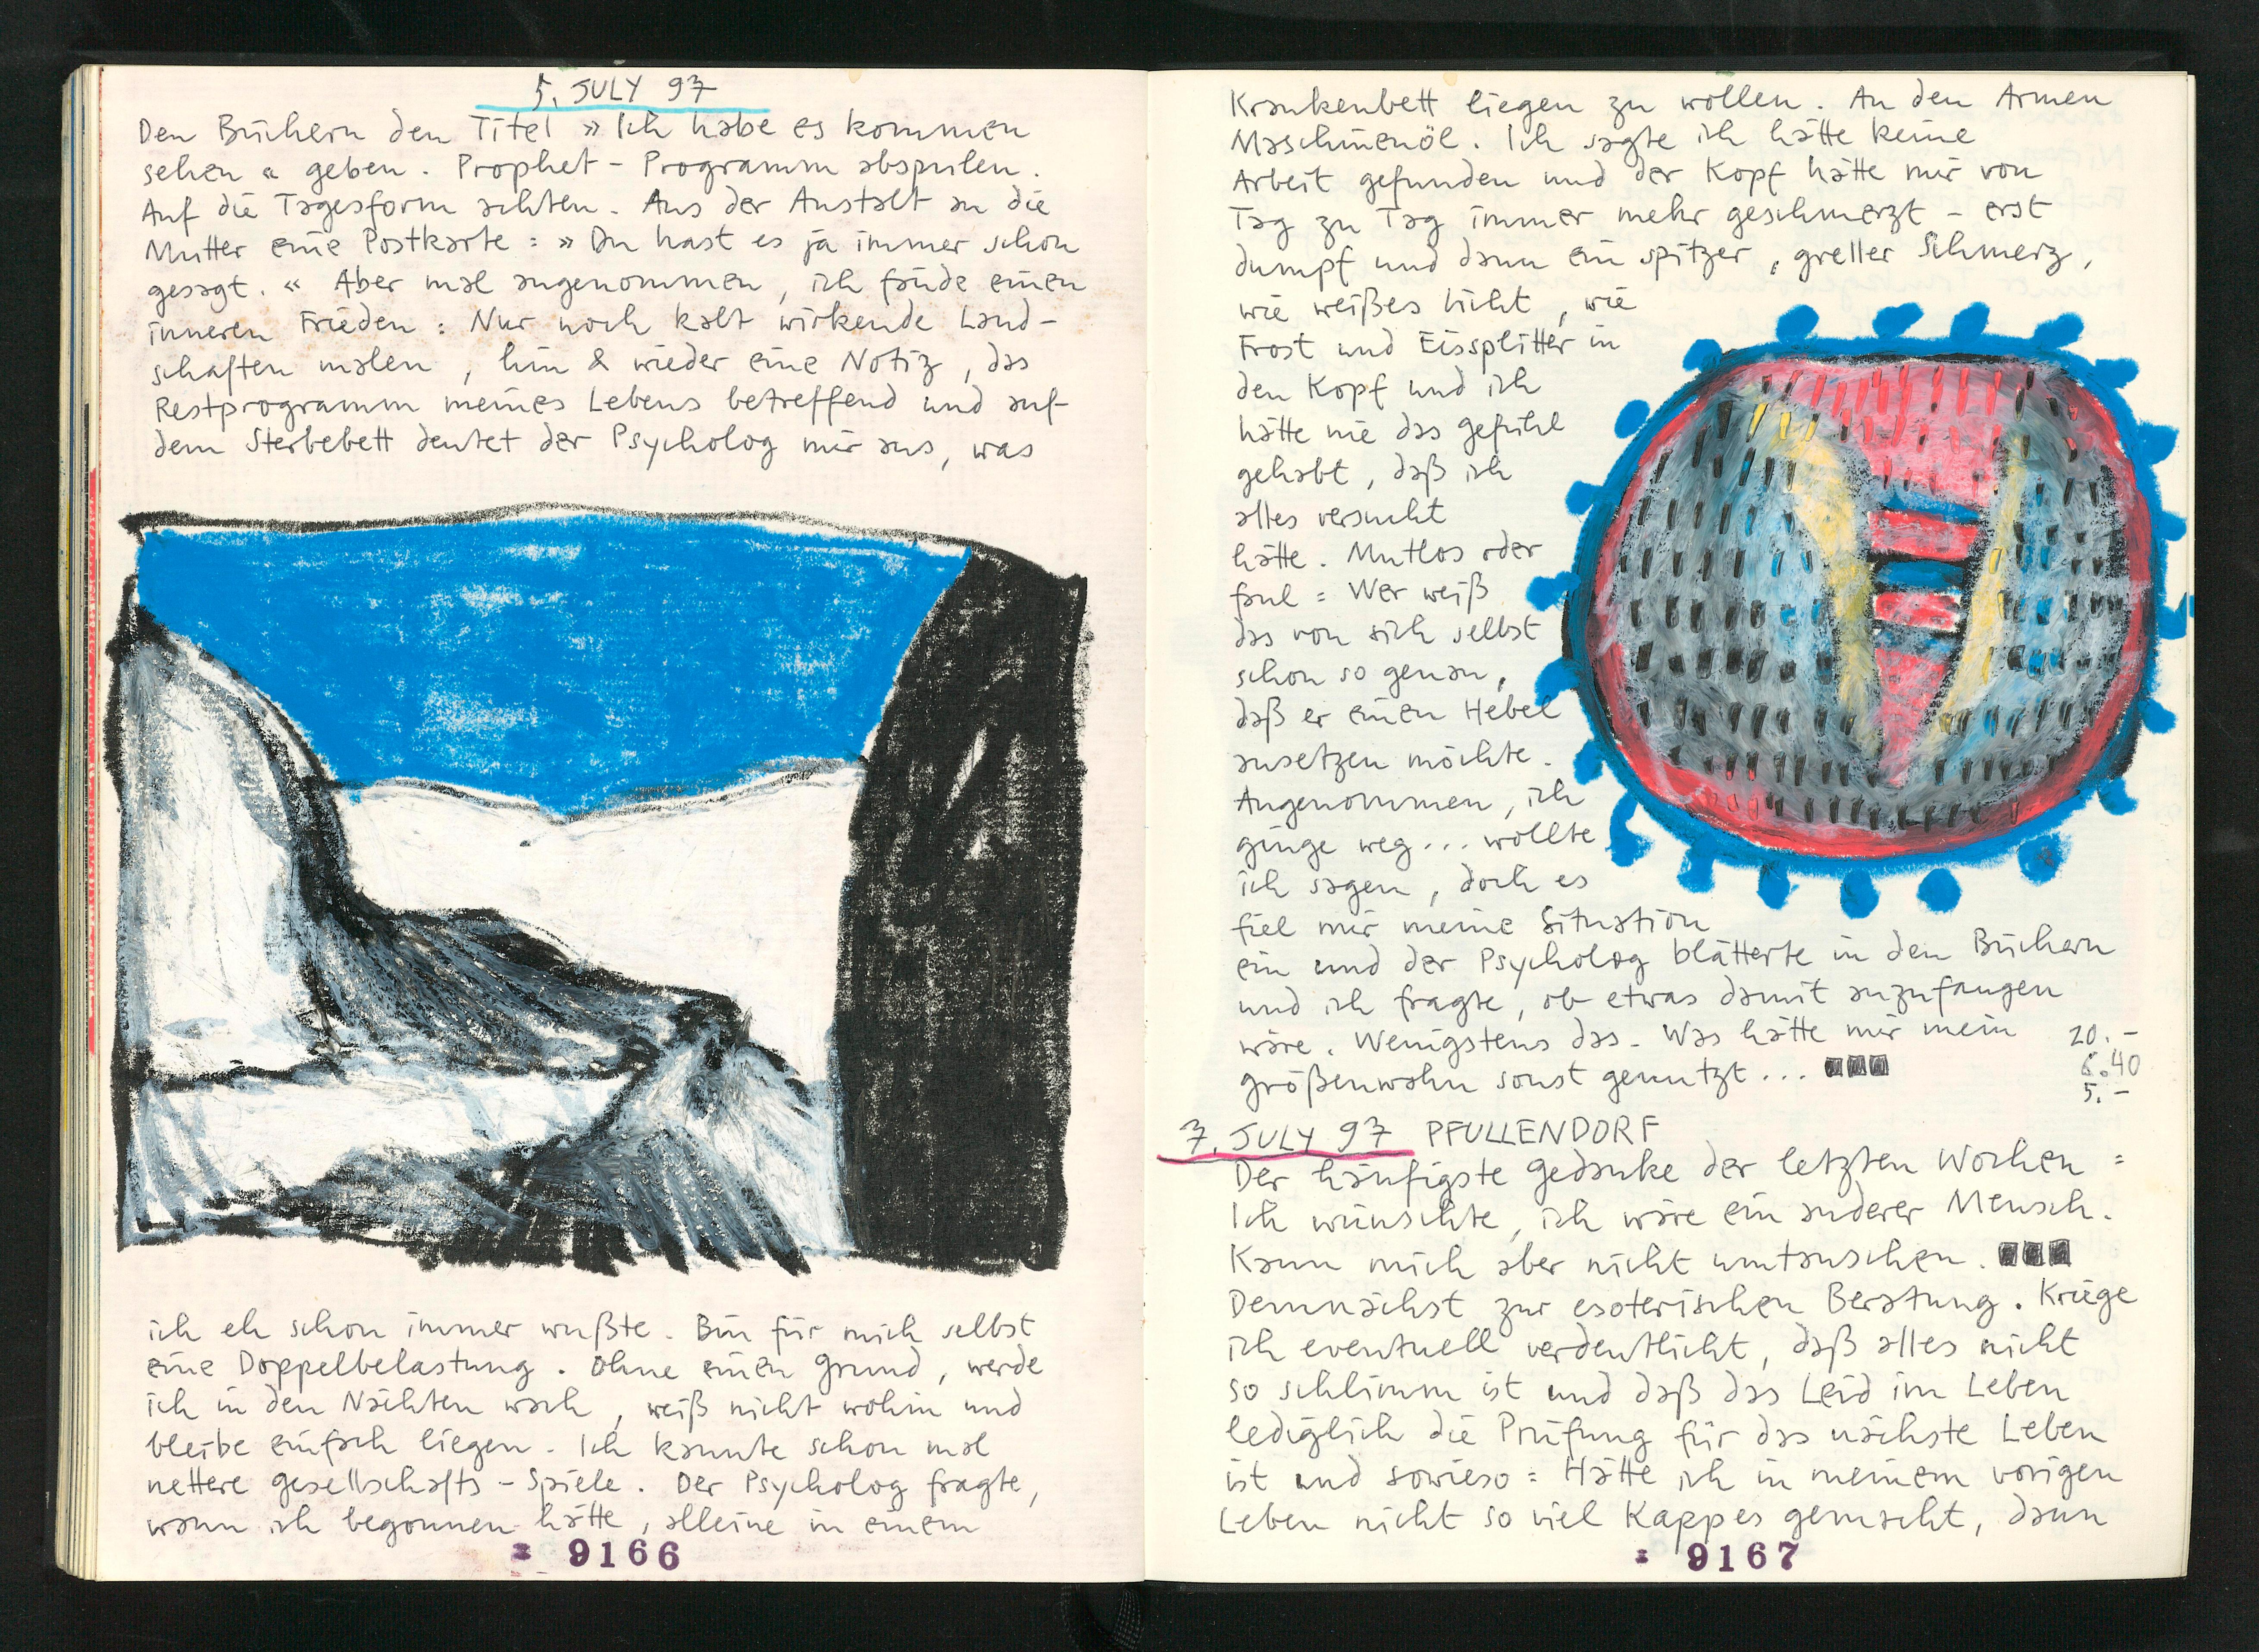 5. JULY 97
Den Büchern den Titel » Ich habe es kommen
sehen « geben. Prophet-Programm abspulen.
Auf die Tagesform achten. Aus der Anstalt an die
Mutter eine Postkarte: » Du hast es ja immer schon
gesagt. « Aber mal angenommen, ich fände einen
inneren Frieden: Nur noch kalt wirkende Land-
schaften malen, hin & wieder eine Notiz, das
Restprogramm meines Lebens betreffend und auf
dem Sterbebett deutet der Psycholog mir aus, was
ich eh schon immer wußte. Bin für mich selbst
eine Doppelbelastung. Ohne einen Grund, werde
ich in den Nächten wach, weiß nicht wohin und
bleibe einfach liegen. Ich kannte schon mal
nettere Gesellschafts-Spiele. Der Psycholog fragte,
wann ich begonnen hätte, alleine in einem
9166
Krankenbett liegen zu wollen. An den Armen
Maschinenöl. Ich sagte ich hätte keine
Arbeit gefunden und der Kopf hätte mir von
Tag zu Tag immer mehr geschmerzt - erst
dumpf und dann ein spitzer, greller Schmerz,
wie weißes Licht, wie
Frost und Eissplitter in
den Kopf und ich
hätte nie das Gefühl
gehabt, daß ich
alles versucht
hätte. Mutlos oder
faul: Wer weiß
das von sich selbst
schon so genau,
daß er einen Hebel
ansetzen möchte.
Angenommen, ich
ginge weg... wollte
ich sagen, doch es
fiel mir meine Situation
ein und der Psycholog blätterte in den Büchern
und ich fragte, ob etwas damit anzufangen
wäre. Wenigstens das. Was hätte mir mein
Größenwahn sonst genutzt...
20.-
6.40
5.-
7. JULY 97 PFULLENDORF
Der häufigste Gedanke der letzten Wochen:
Ich wünschte, ich wäre ein anderer Mensch.
Kann mich aber nicht umtauschen.
Demnächst zur esoterischen Beratung. Kriege
ich eventuell verdeutlicht, daß alles nicht
so schlimm ist und daß das Leid im Leben
lediglich die Prüfung für das nächste Leben
ist und sowieso: Hätte ich in meinem vorigen
Leben nicht so viel Kappes gemacht, dann
9167